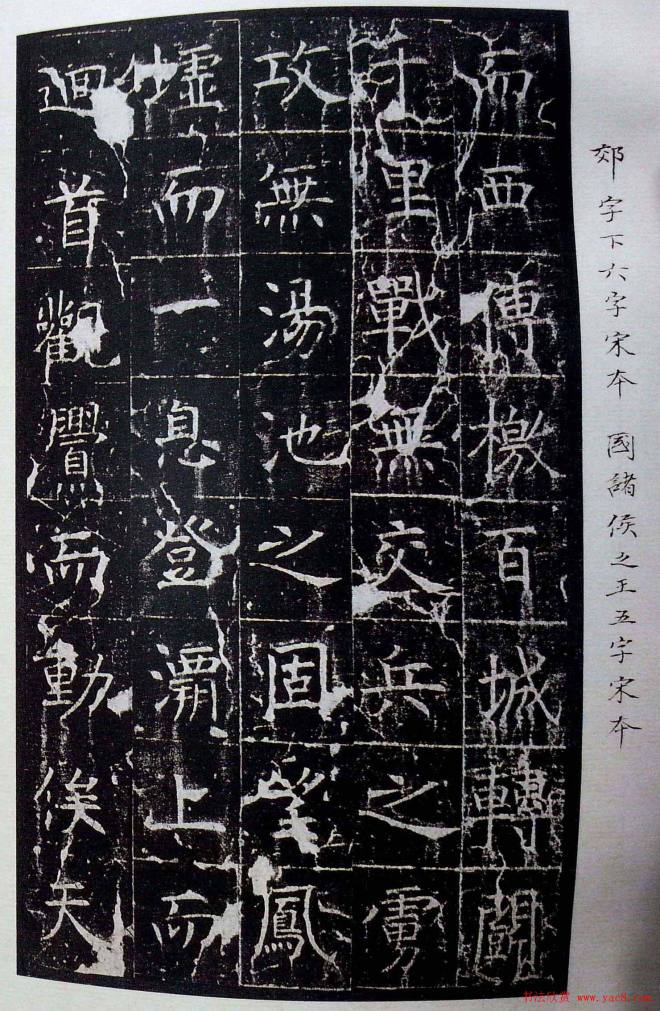 郊字下六字宋本 國諸侯之王五字宋本
而西傳檄百城轉鬭
里戰無交兵之虜
攻無湯池之固望鳳
墟而一息登灞上而
迴首觀舋而動俟天
书法欣赏 www.yac8.com